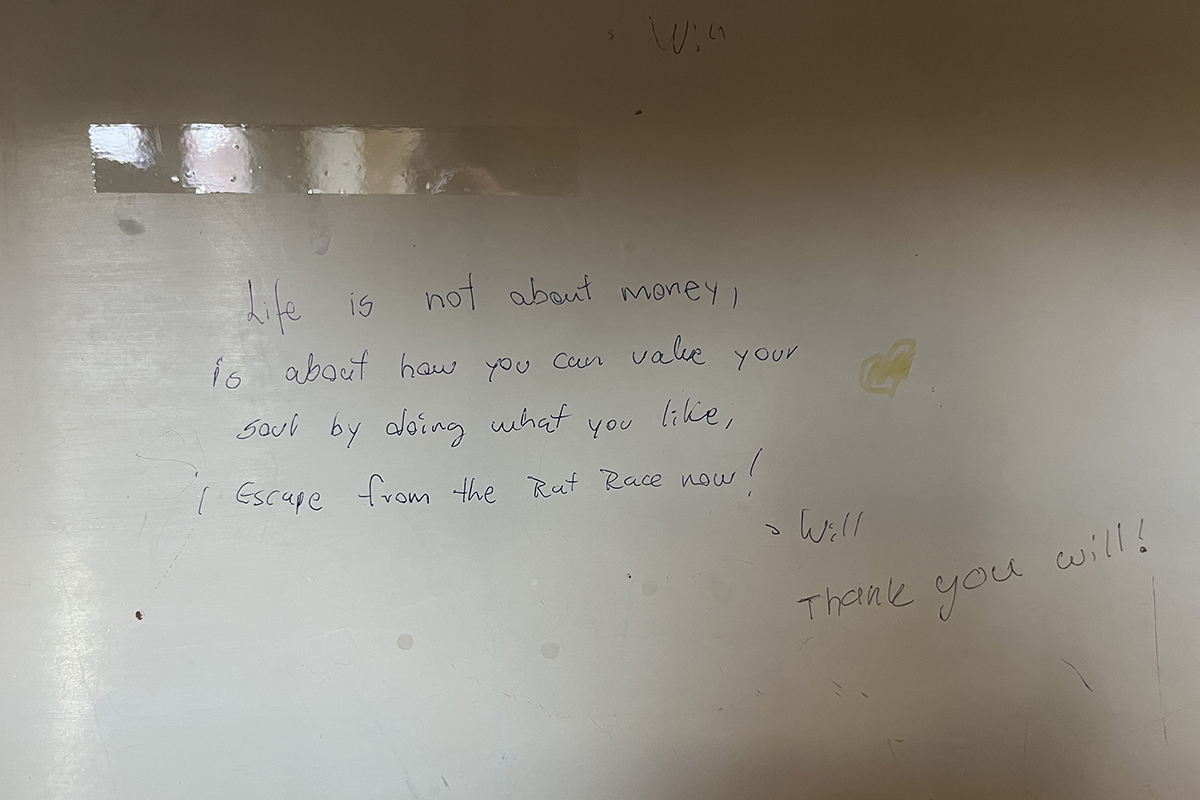 Will
Life is not about money,
is about how you can value your
soul by doing what you like,
Escape from the Rat Race now!
Will
Thank you will!